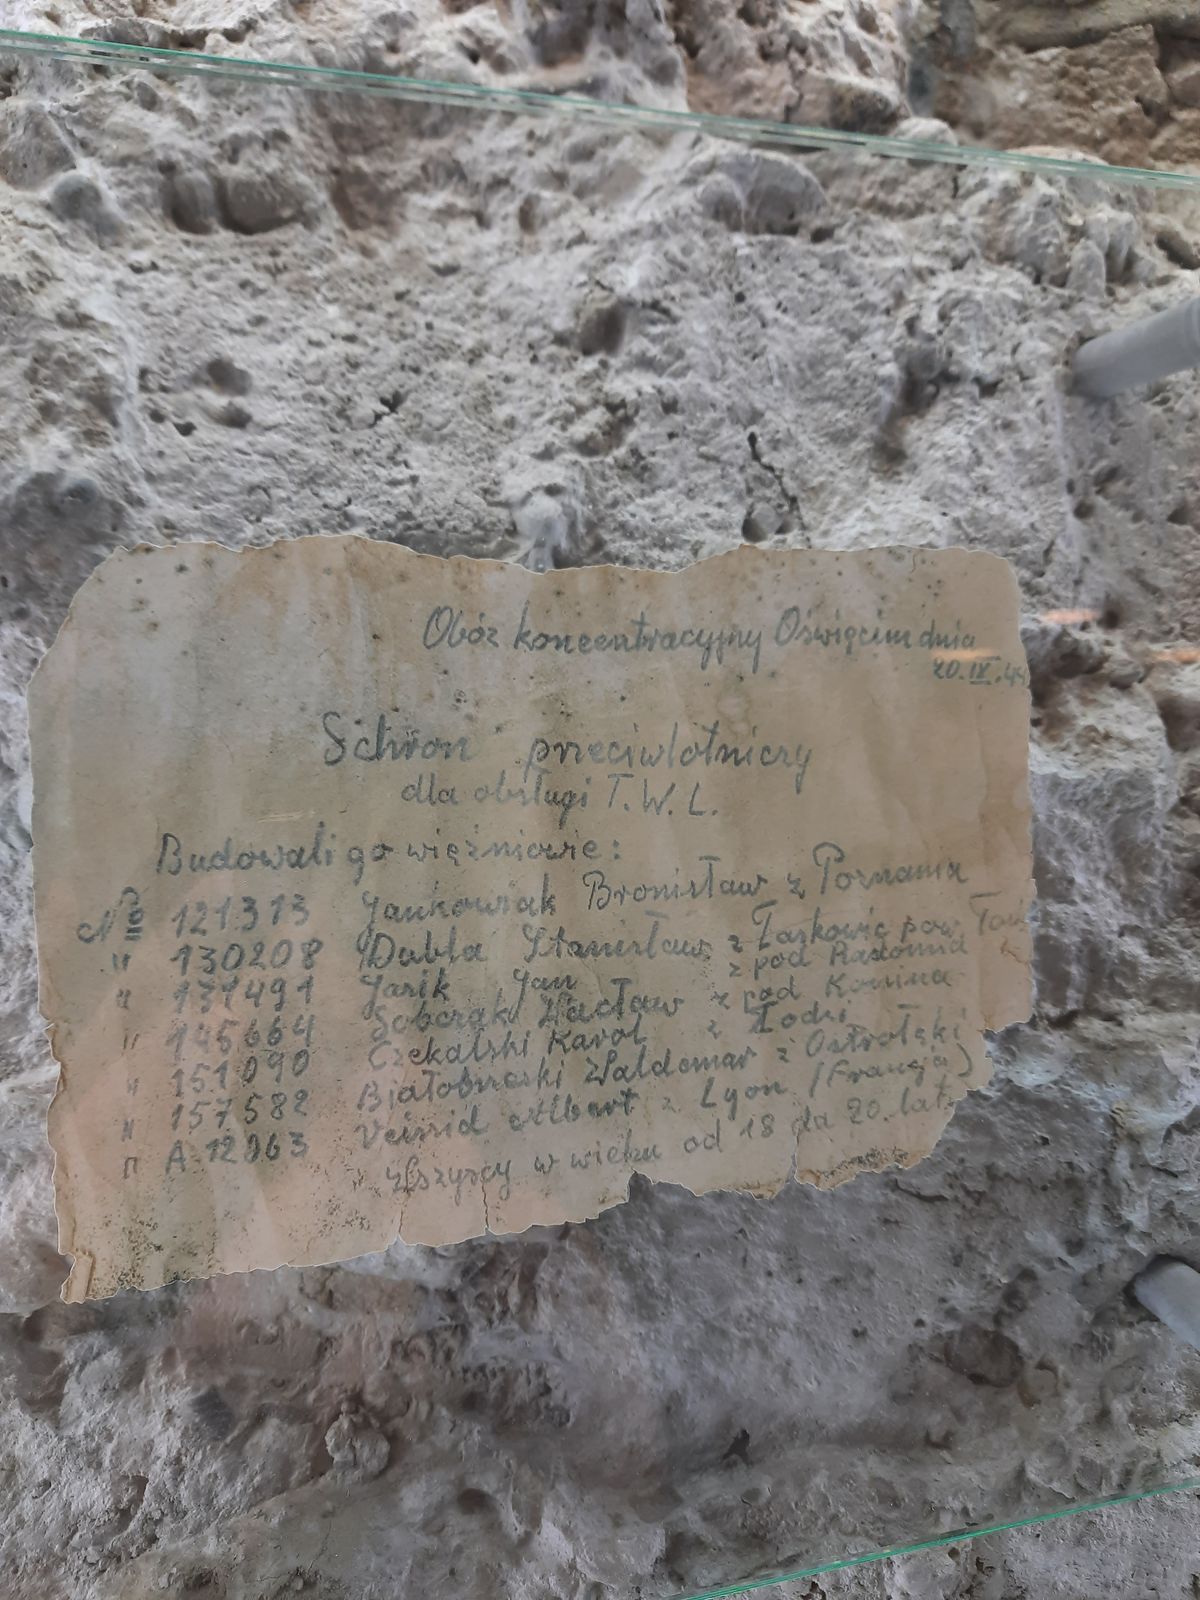 Obóz koncentracyjny Oświęcim dnia
20.IX.44
Schron przeciwlotniczy
dla obsługi T.W.L.
Budowali go więźniowie:
№ 121313 Jankowiak Bronisław z Poznania
" 130208 Dubla Stanisław z Łaskowic pow.
" 131491 Jasik Jan z pod Radomia
" 145664 Sobczak Wacław z pod Konina
" 151090 Czekalski Karol z Łodzi
" 157582 Białobrzeski Waldemar z Ostrołęki
" A 12063 Veissid Albert z Lyon (Francja)
Wszyscy w wieku od 18 da 20. lat.